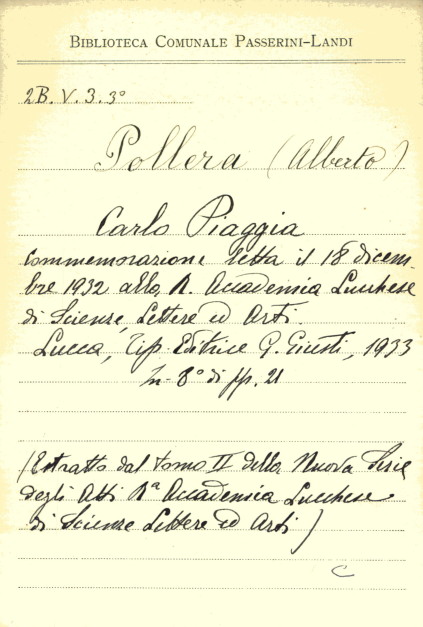 BIBLIOTECA COMUNALE PASSERINI-LANDI
2B. V. 3. 3°
Pollera (Alberto)
Carlo Piaggia
Commemorazione letta il 18 dicem-
bre 1932 alla R. Accademia Lucchese
di Scienze, Lettere ed Arti.
Lucca, Tip. Editrice G. Giusti, 1933
In 8° di pp. 21
(Estratto dal tomo II della Nuova Serie
degli Atti Rª Accademia Lucchese
di Scienze Lettere ed Arti)
C